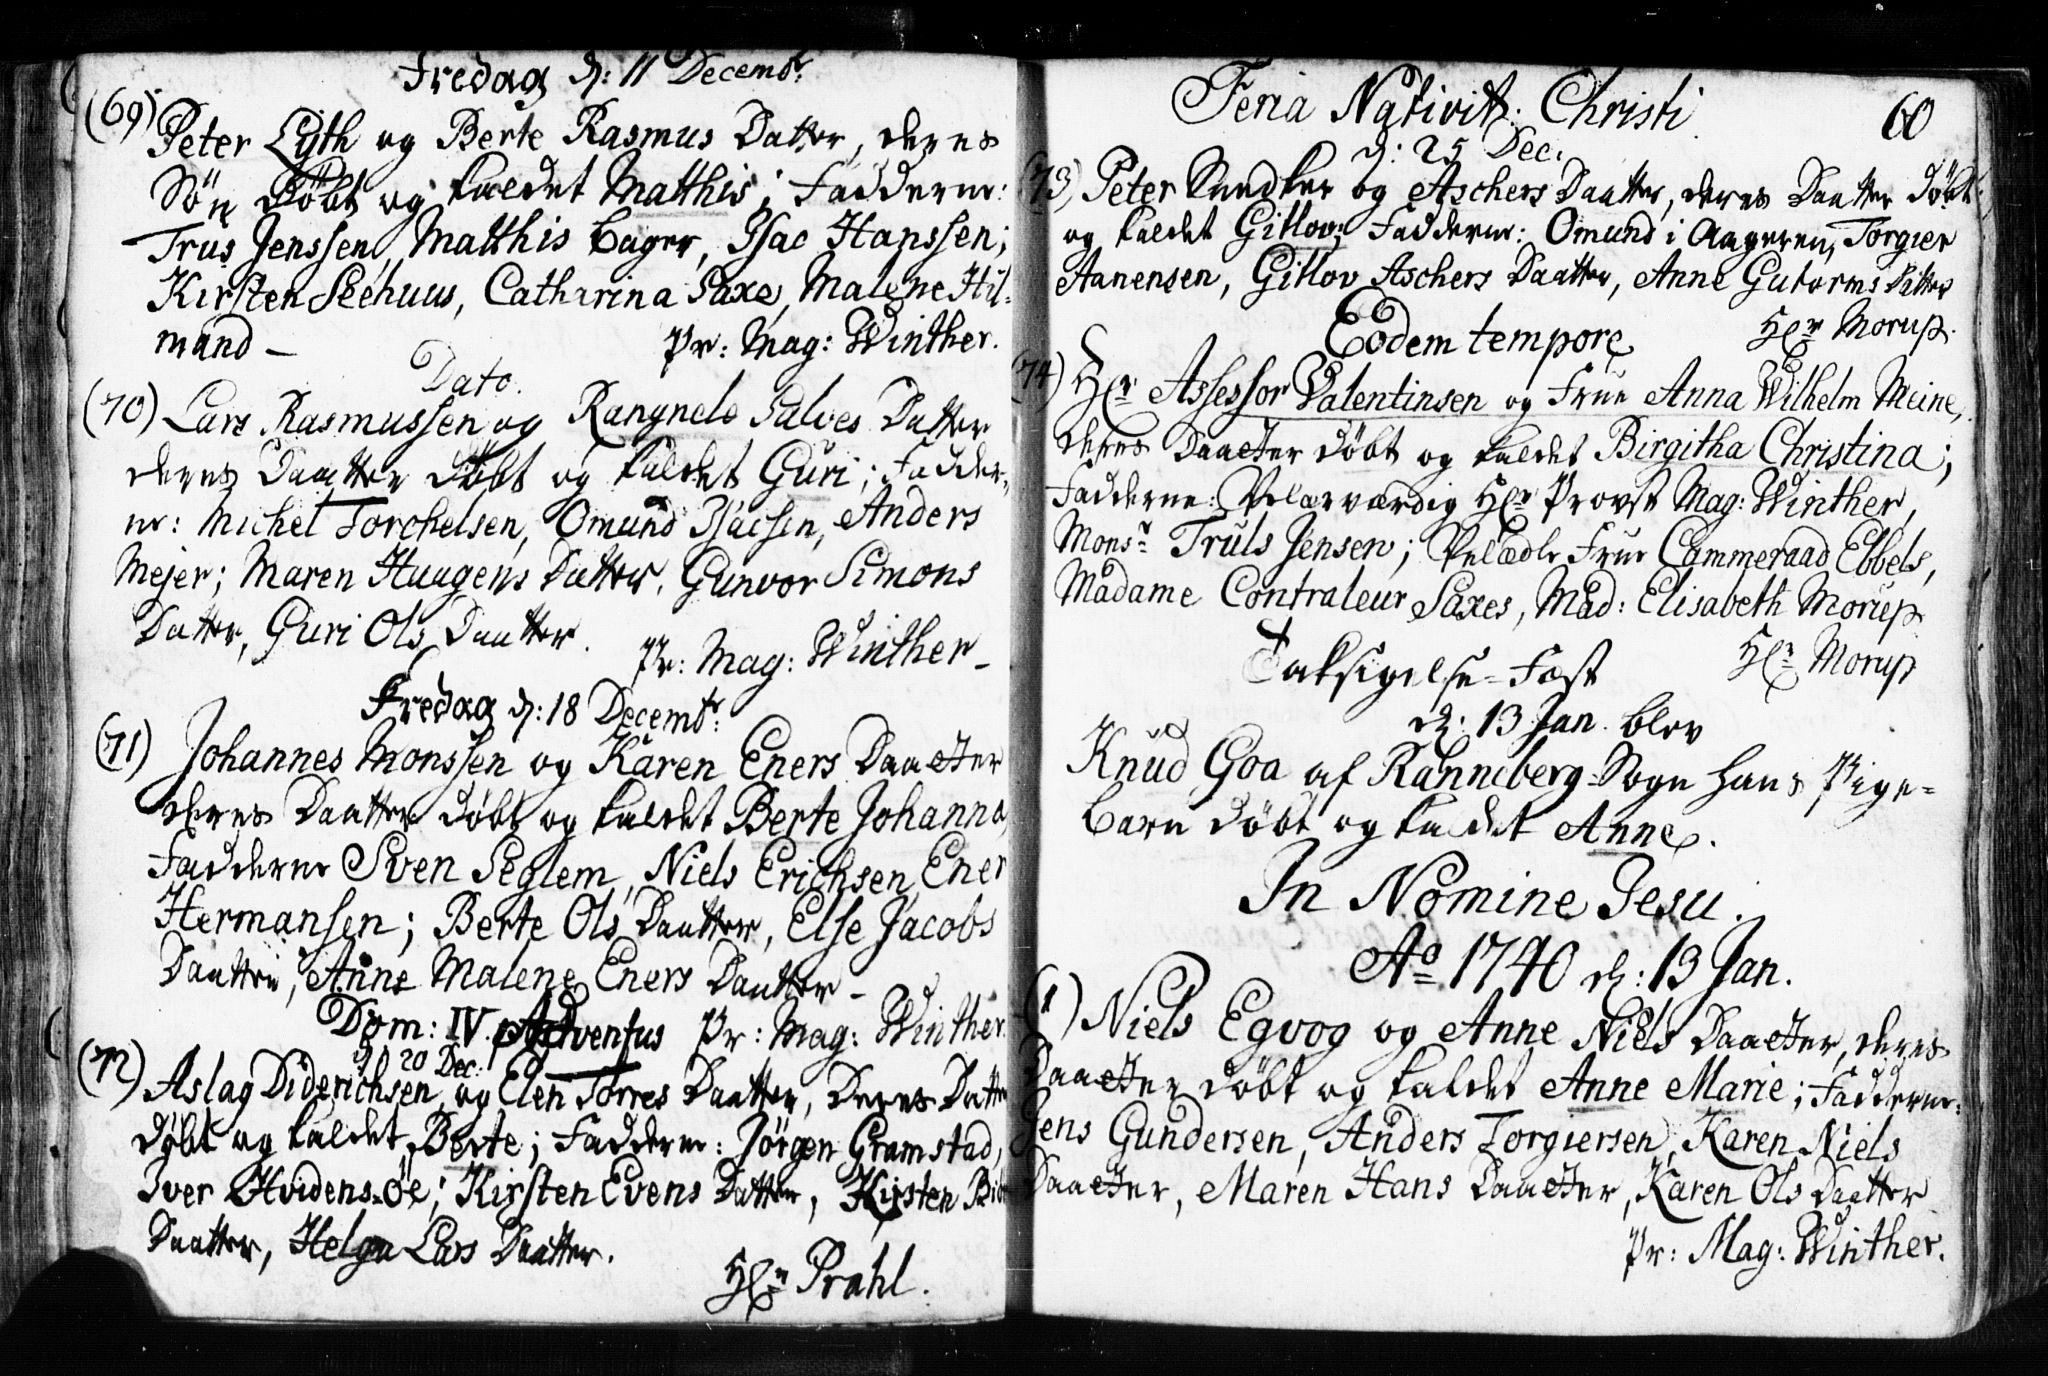 Fredag d: 11 Decembr:
(69) Peter Lyth og Berte Rasmus Datter, deres
Søn Døbt og kaldet Matthis; Fadderne:
Trus Jenssen, Matthis Bager, Isac Hanssen;
Kirsten Seehuus, Catharina Saxe, Malene Hil-
mand –
Pr: Mag: Winther.
Dato.
(70) Lars Rasmussen og Rangnele Salves Datter
deres Daatter døbt og kaldet Guri; Fadder-
ne: Michel Torchelsen, Omund Isacsen, Anders
Mejer; Maren Haagens Datter, Gunvor Simons
Datter, Guri Ols Daatter.
Pr: Mag: Winther –
Fredag d: 18 Decembr:
(71) Johannes Monssen og Karen Eners Daatter
deres Daatter døbt og kaldet Berte Johanna,
Fadderne Sven Seglem, Niels Erichsen, Ener
Hermansen; Berte Ols Daatter, Else Jacobs
Daatter, Anne Malene Eners Daatter –
Dom: IV. Adventus Pr: Mag: Winther.
d: 20 Dec:
(72) Aslag Diderichsen og Elen Torres Daatter, Deres Datter
døbt og kaldet Berte; Fadderne: Jørgen Gramstad,
Iver Hvidens-Øe; Kirsten Evens Datter, Kirsten
Daatter, Helga Lars Daatter.
Hr Prahl.
Feria Nativit: Christi 60
d: 25 Dec:
(73) Peter Snedker og Aschers Daatter, deres Daatter døbt
og kaldet Gitlov; Fadderne: Omund i Aageren, Torgier
Aanensen, Gitlov Aschers Daatter, Anne Gutorms Datter
Hr Morup.
Eodem tempore
(74) Hr Assessor Valentinsen og Frue Anna Wilhelm Meine,
deres Daatter døbt og kaldet Birgitha Christina;
Fadderne: Velærværdig Hr Provst Mag: Winther,
Monsr Truls Jensen; Velædle Frue Cammeraad Ebbels,
Madame Contraleur Saxes, Mad: Elisabeth Morup
Hr Morup
Taksigelse-Fest
d: 13 Jan. blev
Knud Goa af Ranneberg-Sogn hans Pige-
barn døbt og kaldet Anne.
In Nomine Jesu.
Ao 1740 d: 13 Jan.
(1) Niels Egvog og Anne Niels Daatter, deres
Daatter døbt og kaldet Anne Marie; Fadderne:
Jens Gundersen, Anders Torgiersen, Karen Niels
Daatter, Maren Hans Daatter, Karen Ols Daatter
Pr: Mag: Winther.